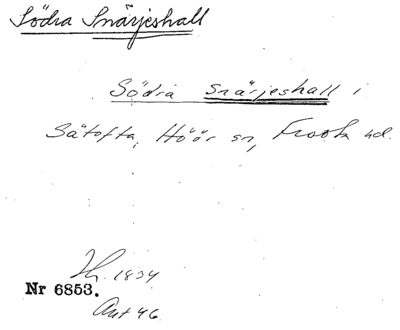 Södra Snärjeshall
Södra Snärjeshall i
Sätofta, Höör sn, Frosta hd.
Jh. 1834
Nr 6853.
Ant 46